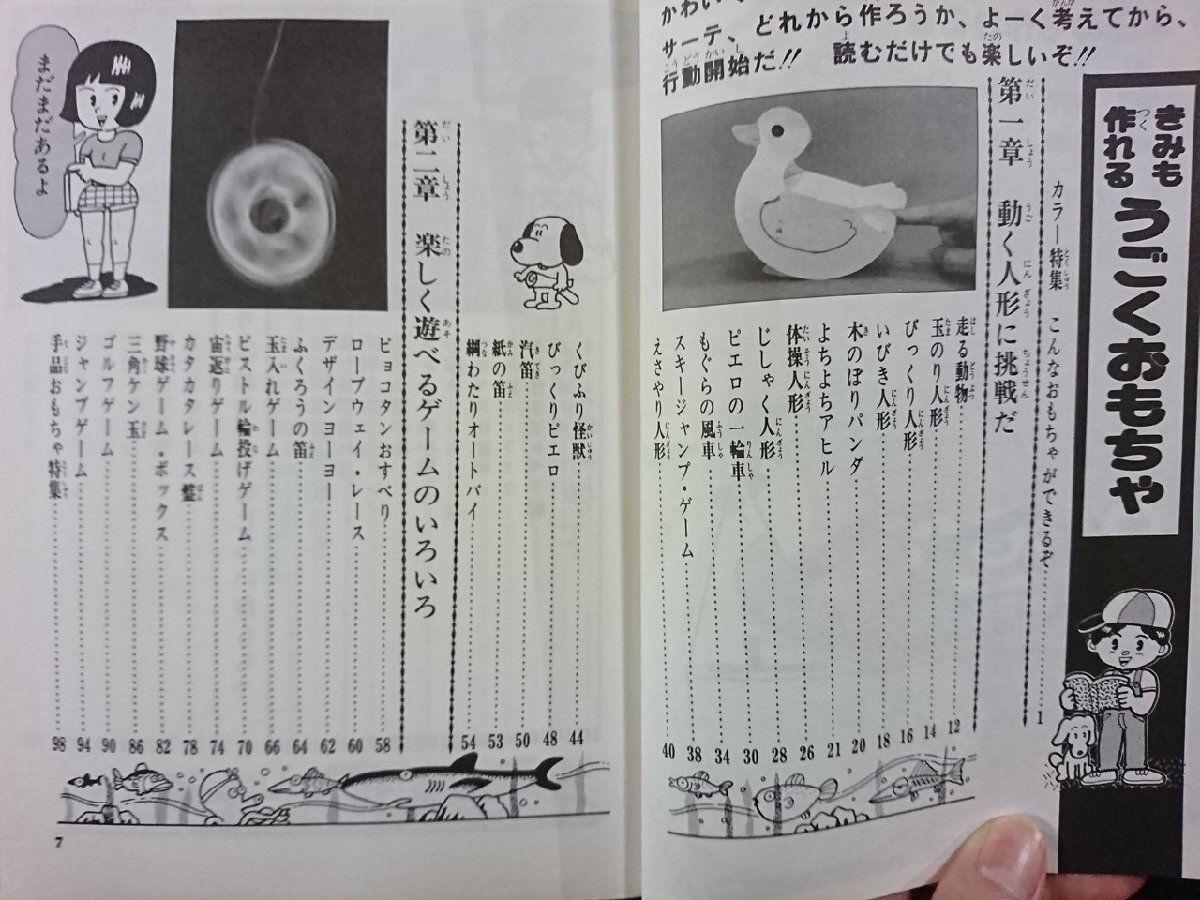 きみも
作れる
うごくおもちゃ
サーテ、どれから作ろうか、よーく考えてから、
行動開始だ!! 読むだけでも楽しいぞ!!
カラー特集 こんなおもちゃができるぞ 1
第一章 動く人形に挑戦だ
走る動物 12
玉のり人形 14
びっくり人形 16
いびき人形 18
木のぼりパンダ 20
よちよちアヒル 21
体操人形 26
じしゃく人形 28
ピエロの一輪車 30
もぐらの風車 34
スキージャンプ・ゲーム 38
えさやり人形 40
くびふり怪獣 44
びっくりピエロ 48
汽笛 50
紙の笛 53
綱わたりオートバイ 54
第二章 楽しく遊べるゲームのいろいろ
ピョコタンおすべり 58
ロープウェイ・レース 60
デザインヨーヨー 62
ふくろうの笛 64
玉入れゲーム 66
ピストル輪投げゲーム 70
宙返りゲーム 74
カタカタレース盤 78
野球ゲーム・ボックス 82
三角ケン玉 86
ゴルフゲーム 90
ジャンプゲーム 94
手品おもちゃ特集 98
まだまだあるよ
7